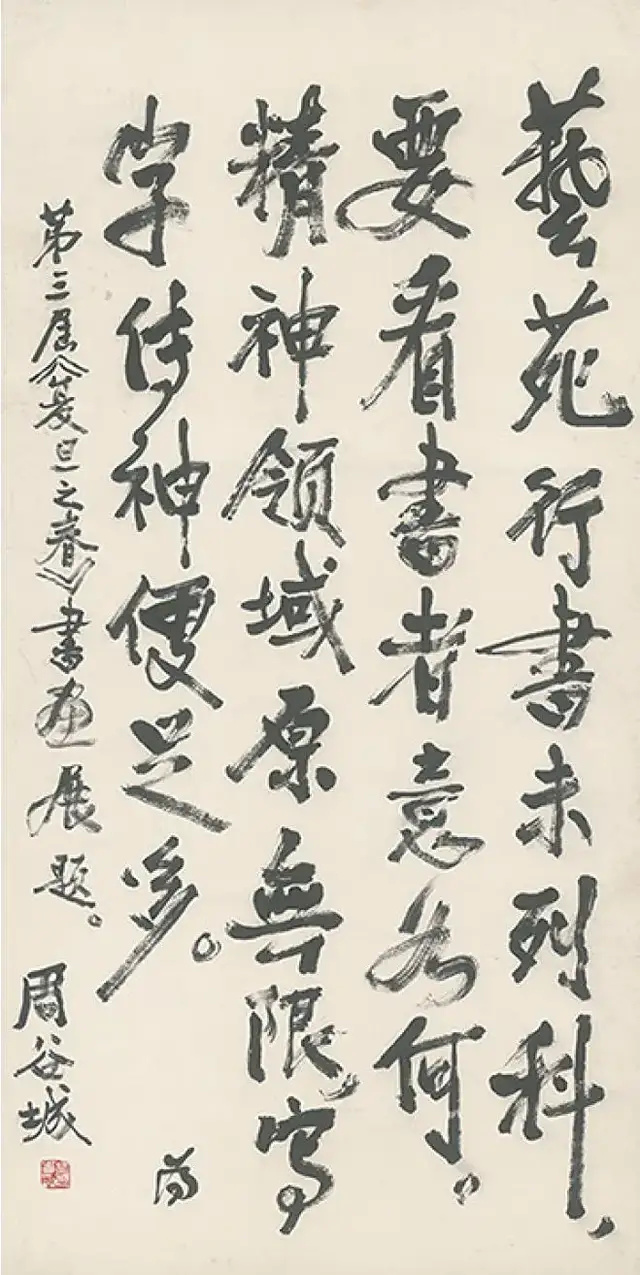 藝苑行書未列科，
要看書者意如何。
精神領域原無限，寫
字传神便足多。 为
第三届《复旦之春》書画展题。 周谷城